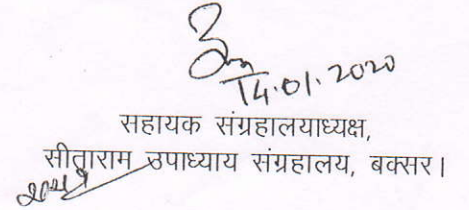 14.01.2020
सहायक संग्रहालयाध्यक्ष,
सीताराम उपाध्याय संग्रहालय, बक्सर।